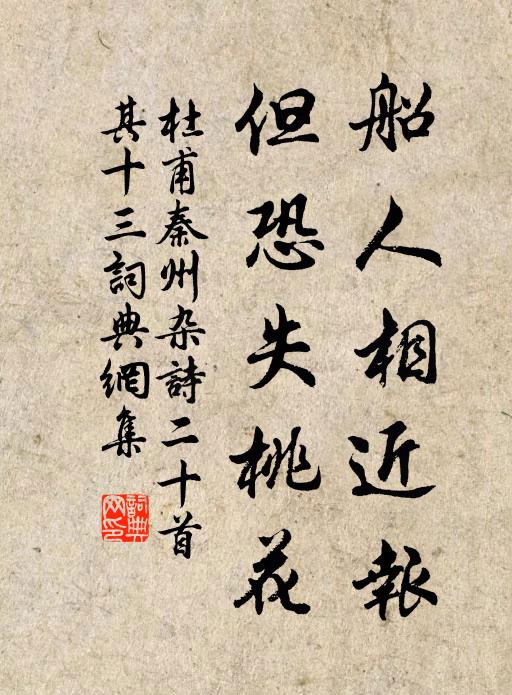 船人相近報
但恐失桃花
杜甫秦州杂詩二十首
其十三詞典網集
詞典网印